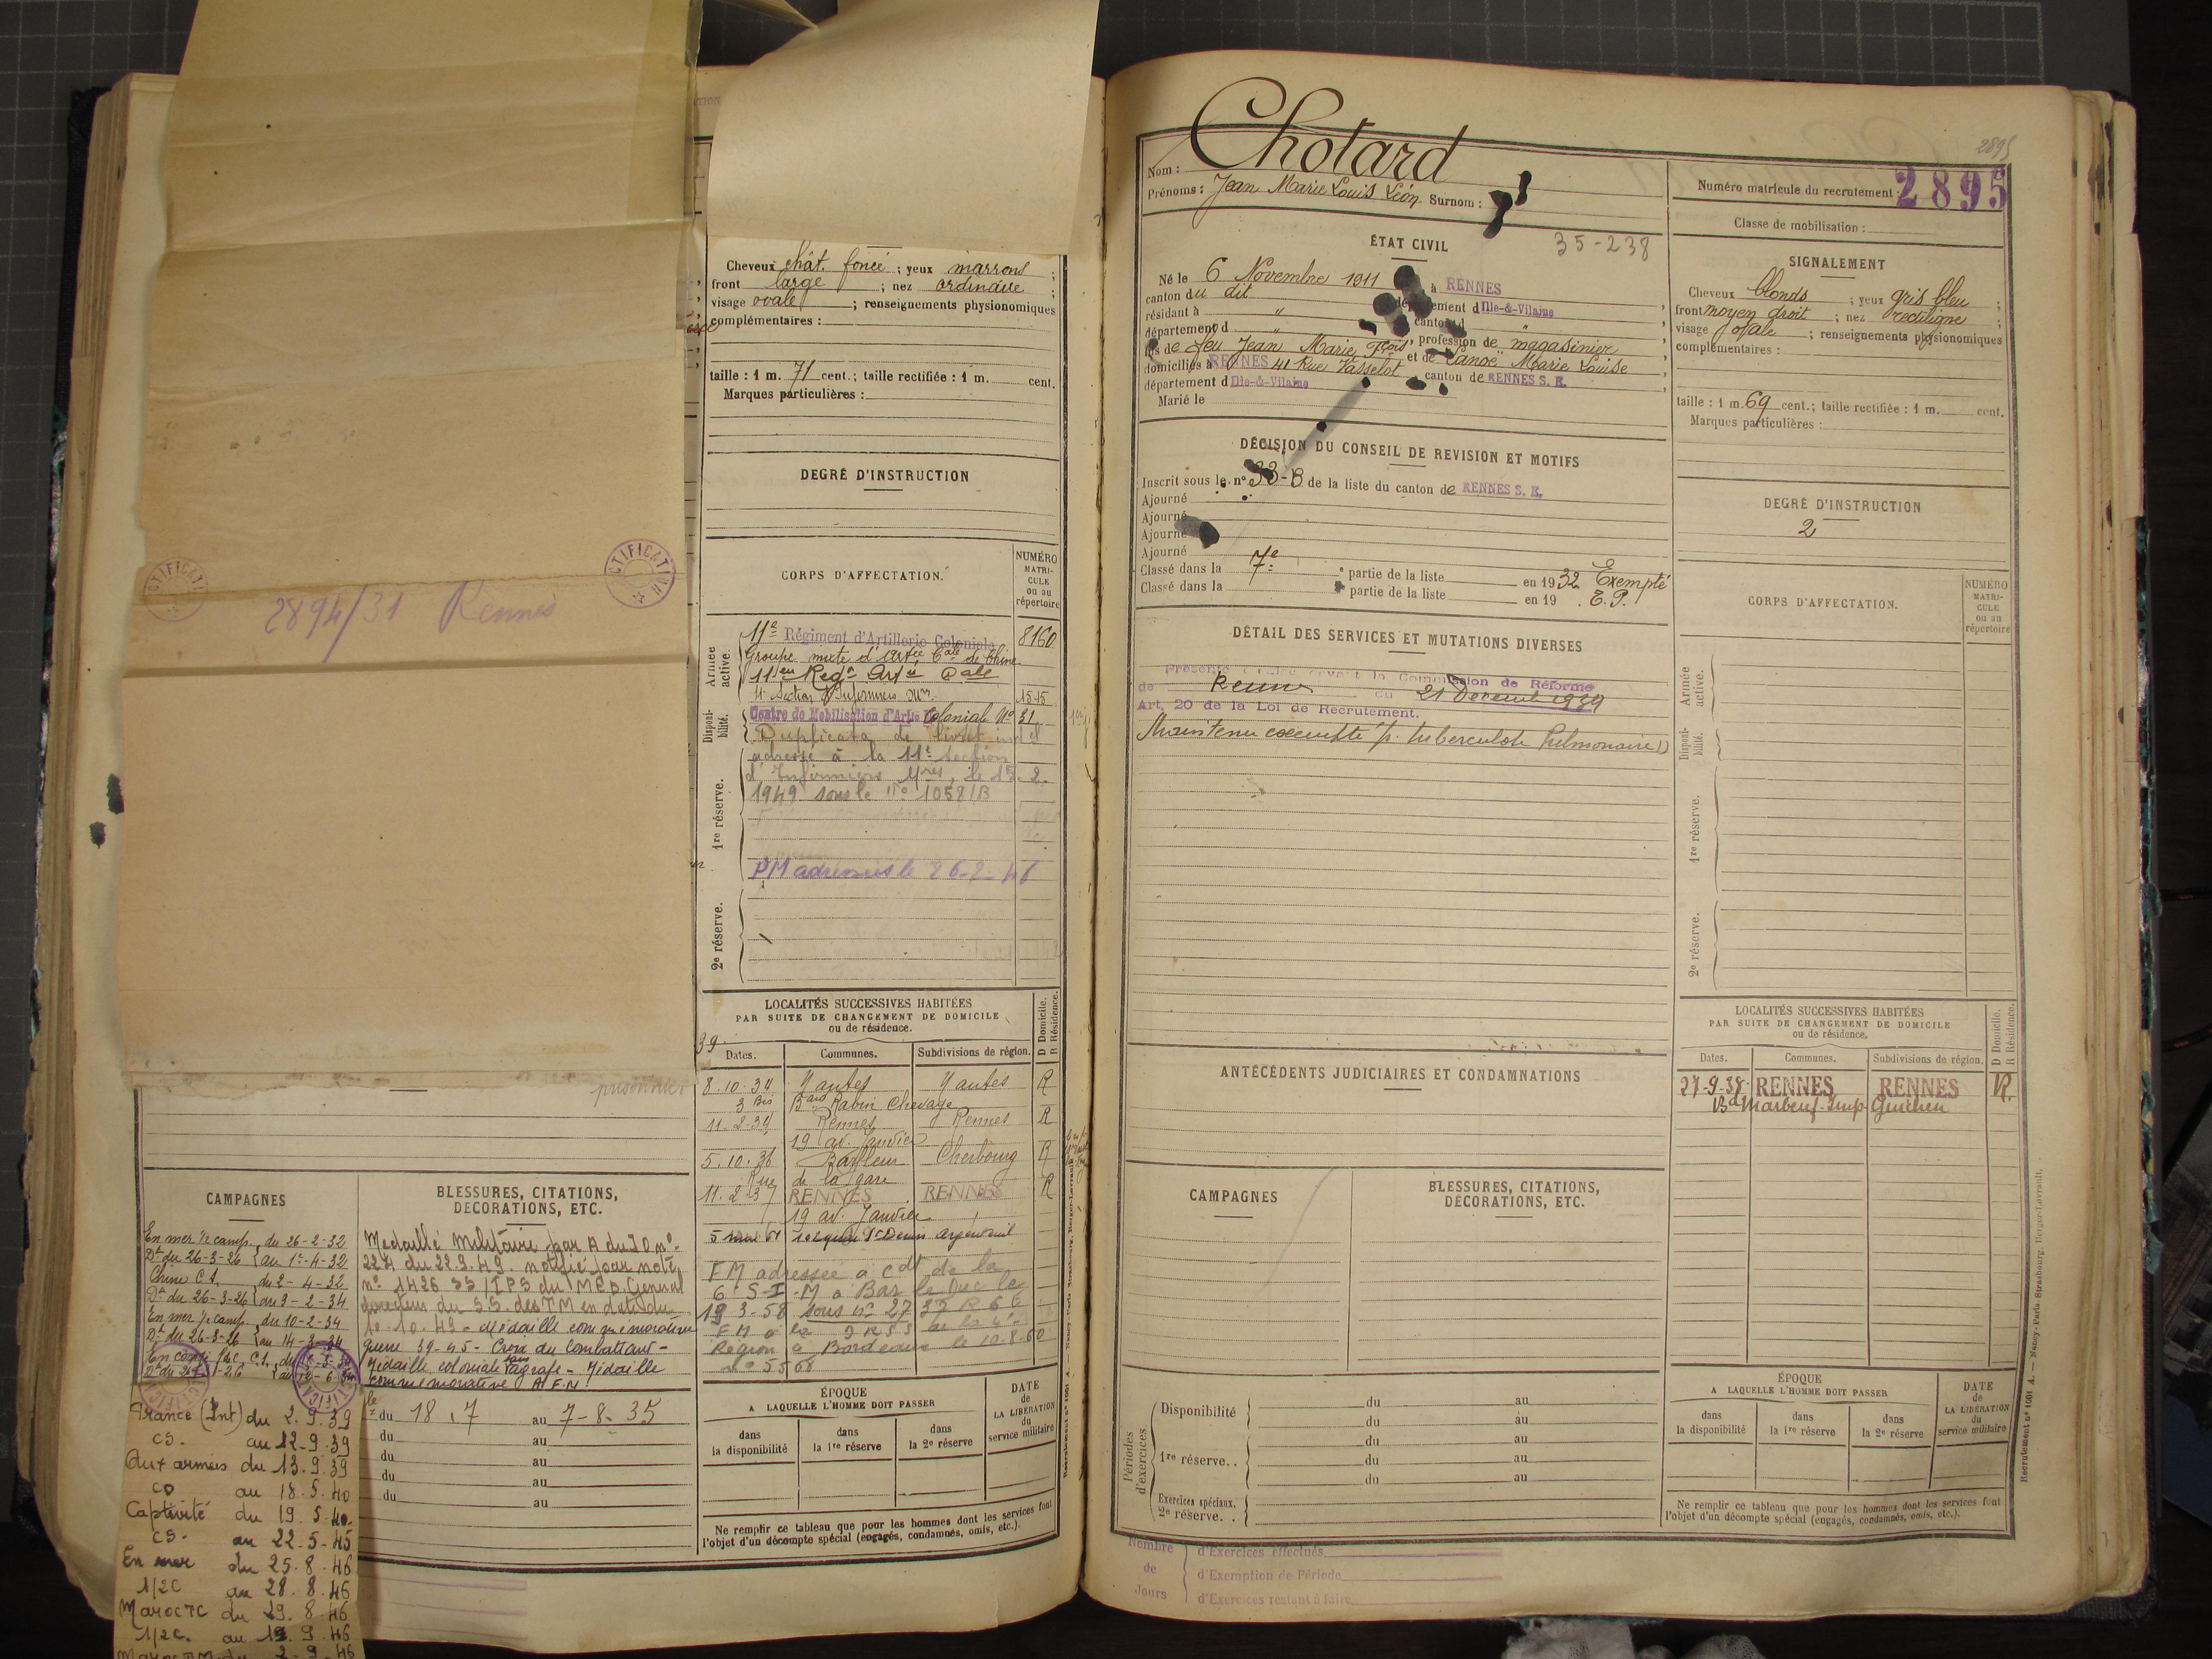 2894/31 Rennes
prisonnier
CAMPAGNES
En mer 1/2 camp. du 26-2-32
Dt du 26-3-26 au 1er-4-32
Chine C.S. du 2-4-32
Dt du 26-3-26 au 9-2-34
En mer 1/2 camp. du 10-2-34
Dt du 26-3-26 au 14-3-34
France (Int) du 2.9.39
CS. au 12.9.39
Aux armées du 13.9.39
CD au 18.5.40
Captivité du 19.5.40
CS. au 22-5-45
En mer du 25.8.46
1/2C au 28.8.46
Maroc TC du 29.8.46
1/2C. au 19.9.46
BLESSURES, CITATIONS,
DÉCORATIONS, ETC.
Médaille Militaire par A du J O n°
224 du 22.9.49. notifié par note
n° 1426
10.10.49 - Médaille commémorative
guerre 39-45 - Croix du Combattant -
Médaille coloniale sans agrafe - Médaille
commémorative A F N
du 18.7 au 7-8-35
du au
du au
du au
du au
Cheveux chât. foncé ; yeux marrons ;
front large ; nez ordinaire ;
visage ovale ; renseignements physionomiques
complémentaires :
taille : 1 m. 71 cent.; taille rectifiée : 1 m. cent.
Marques particulières :
DEGRÉ D'INSTRUCTION
CORPS D'AFFECTATION.
NUMÉRO
MATRI-
CULE
ou au
répertoire
Armée
active.
11e Régiment d'Artillerie Coloniale 8160
Groupe mixte d'Artie Cale de Chine
11e Regt Artie Cale
11e Section d'Infirmiers Mres 1545
Disponi-
bilité.
Centre de Mobilisation d'Artie Colonial N° 31
Duplicata de livret ind el
adressé à la 11e section
d'Infirmiers Mres, le 15-2-
1949 sous le N° 1058/B
1re réserve.
PM adressée le 26-2-46
2e réserve.
LOCALITÉS SUCCESSIVES HABITÉES
PAR SUITE DE CHANGEMENT DE DOMICILE
ou de résidence.
D Domicile.
R Résidence.
39
Dates. Communes. Subdivisions de région.
8.10.34 Nantes Nantes R
3 Bis Bard Rabin Chevaye
11-2-34 Rennes Rennes R
19 av. Janvier
5.10.36 Barfleur Cherbourg R
Rue de la gare
11.2.37 RENNES RENNES R
19 av. Janvier
FM adressée à cdt de la
6 S-I-M à Bar le Duc le
19 3-58 sous n° 27
Région à Bordeaux le 10.8.60
N° 5568
ÉPOQUE
A LAQUELLE L'HOMME DOIT PASSER
dans
la disponibilité
dans
la 1re réserve
dans
la 2e réserve
DATE
de
LA LIBÉRATION
du
service militaire
Ne remplir ce tableau que pour les hommes dont les services font
l'objet d'un décompte spécial (engagés, condamnés, omis, etc.).
2895
Nom : Chotard
Prénoms : Jean Marie Louis Léon Surnom :
Numéro matricule du recrutement : 2895
Classe de mobilisation :
ÉTAT CIVIL
35-238
Né le 6 Novembre 1911 à RENNES
canton du dit département d Ille-&-Vilaine ,
résidant à " canton d " ,
département d , profession de magasinier ,
fils de feu Jean Marie Fçois et de Lanoë Marie Louise
domiciliés à RENNES 41 Rue Vasselot , canton de RENNES S. E.
département d Ille-&-Vilaine
Marié le
DÉCISION DU CONSEIL DE REVISION ET MOTIFS
Inscrit sous le n° 33-B de la liste du canton de RENNES S. E.
Ajourné
Ajourné
Ajourné
Ajourné
Classé dans la 7e partie de la liste en 1932 Exempté
Classé dans la partie de la liste en 19 . E.P.
DÉTAIL DES SERVICES ET MUTATIONS DIVERSES
Présenté devant la Commission de Réforme
de Rennes du 21 Décembre 1939
Art. 20 de la Loi de Recrutement.
Maintenu exempté p. tuberculose Pulmonaire
ANTÉCÉDENTS JUDICIAIRES ET CONDAMNATIONS
CAMPAGNES
BLESSURES, CITATIONS,
DÉCORATIONS, ETC.
Périodes
d'exercices.
Disponibilité du au
du au
1re réserve.. du au
du au
du au
Exercices spéciaux.
2e réserve. . .
Nombre
de
Jours
d'Exercices effectués
d'Exemption de Période
d'Exercices restant à faire
SIGNALEMENT
Cheveux blonds ; yeux gris bleu ;
front moyen droit ; nez rectiligne ;
visage ovale ; renseignements physionomiques
complémentaires :
taille : 1 m. 69 cent.; taille rectifiée : 1 m. cent.
Marques particulières :
DEGRÉ D'INSTRUCTION
2
CORPS D'AFFECTATION.
NUMÉRO
MATRI-
CULE
ou au
répertoire
Armée
active.
Disponi-
bilité.
1re réserve.
2e réserve.
LOCALITÉS SUCCESSIVES HABITÉES
PAR SUITE DE CHANGEMENT DE DOMICILE
ou de résidence.
D Domicile.
R Résidence.
Dates. Communes. Subdivisions de région.
27-9-38 RENNES RENNES R.
Bd Marbeuf Imp Guichen
ÉPOQUE
A LAQUELLE L'HOMME DOIT PASSER
dans
la disponibilité
dans
la 1re réserve
dans
la 2e réserve
DATE
de
LA LIBÉRATION
du
service militaire
Ne remplir ce tableau que pour les hommes dont les services font
l'objet d'un décompte spécial (engagés, condamnés, omis, etc.).
Recrutement n° 1001 A. — Nancy-Paris-Strasbourg, Berger-Levrault.